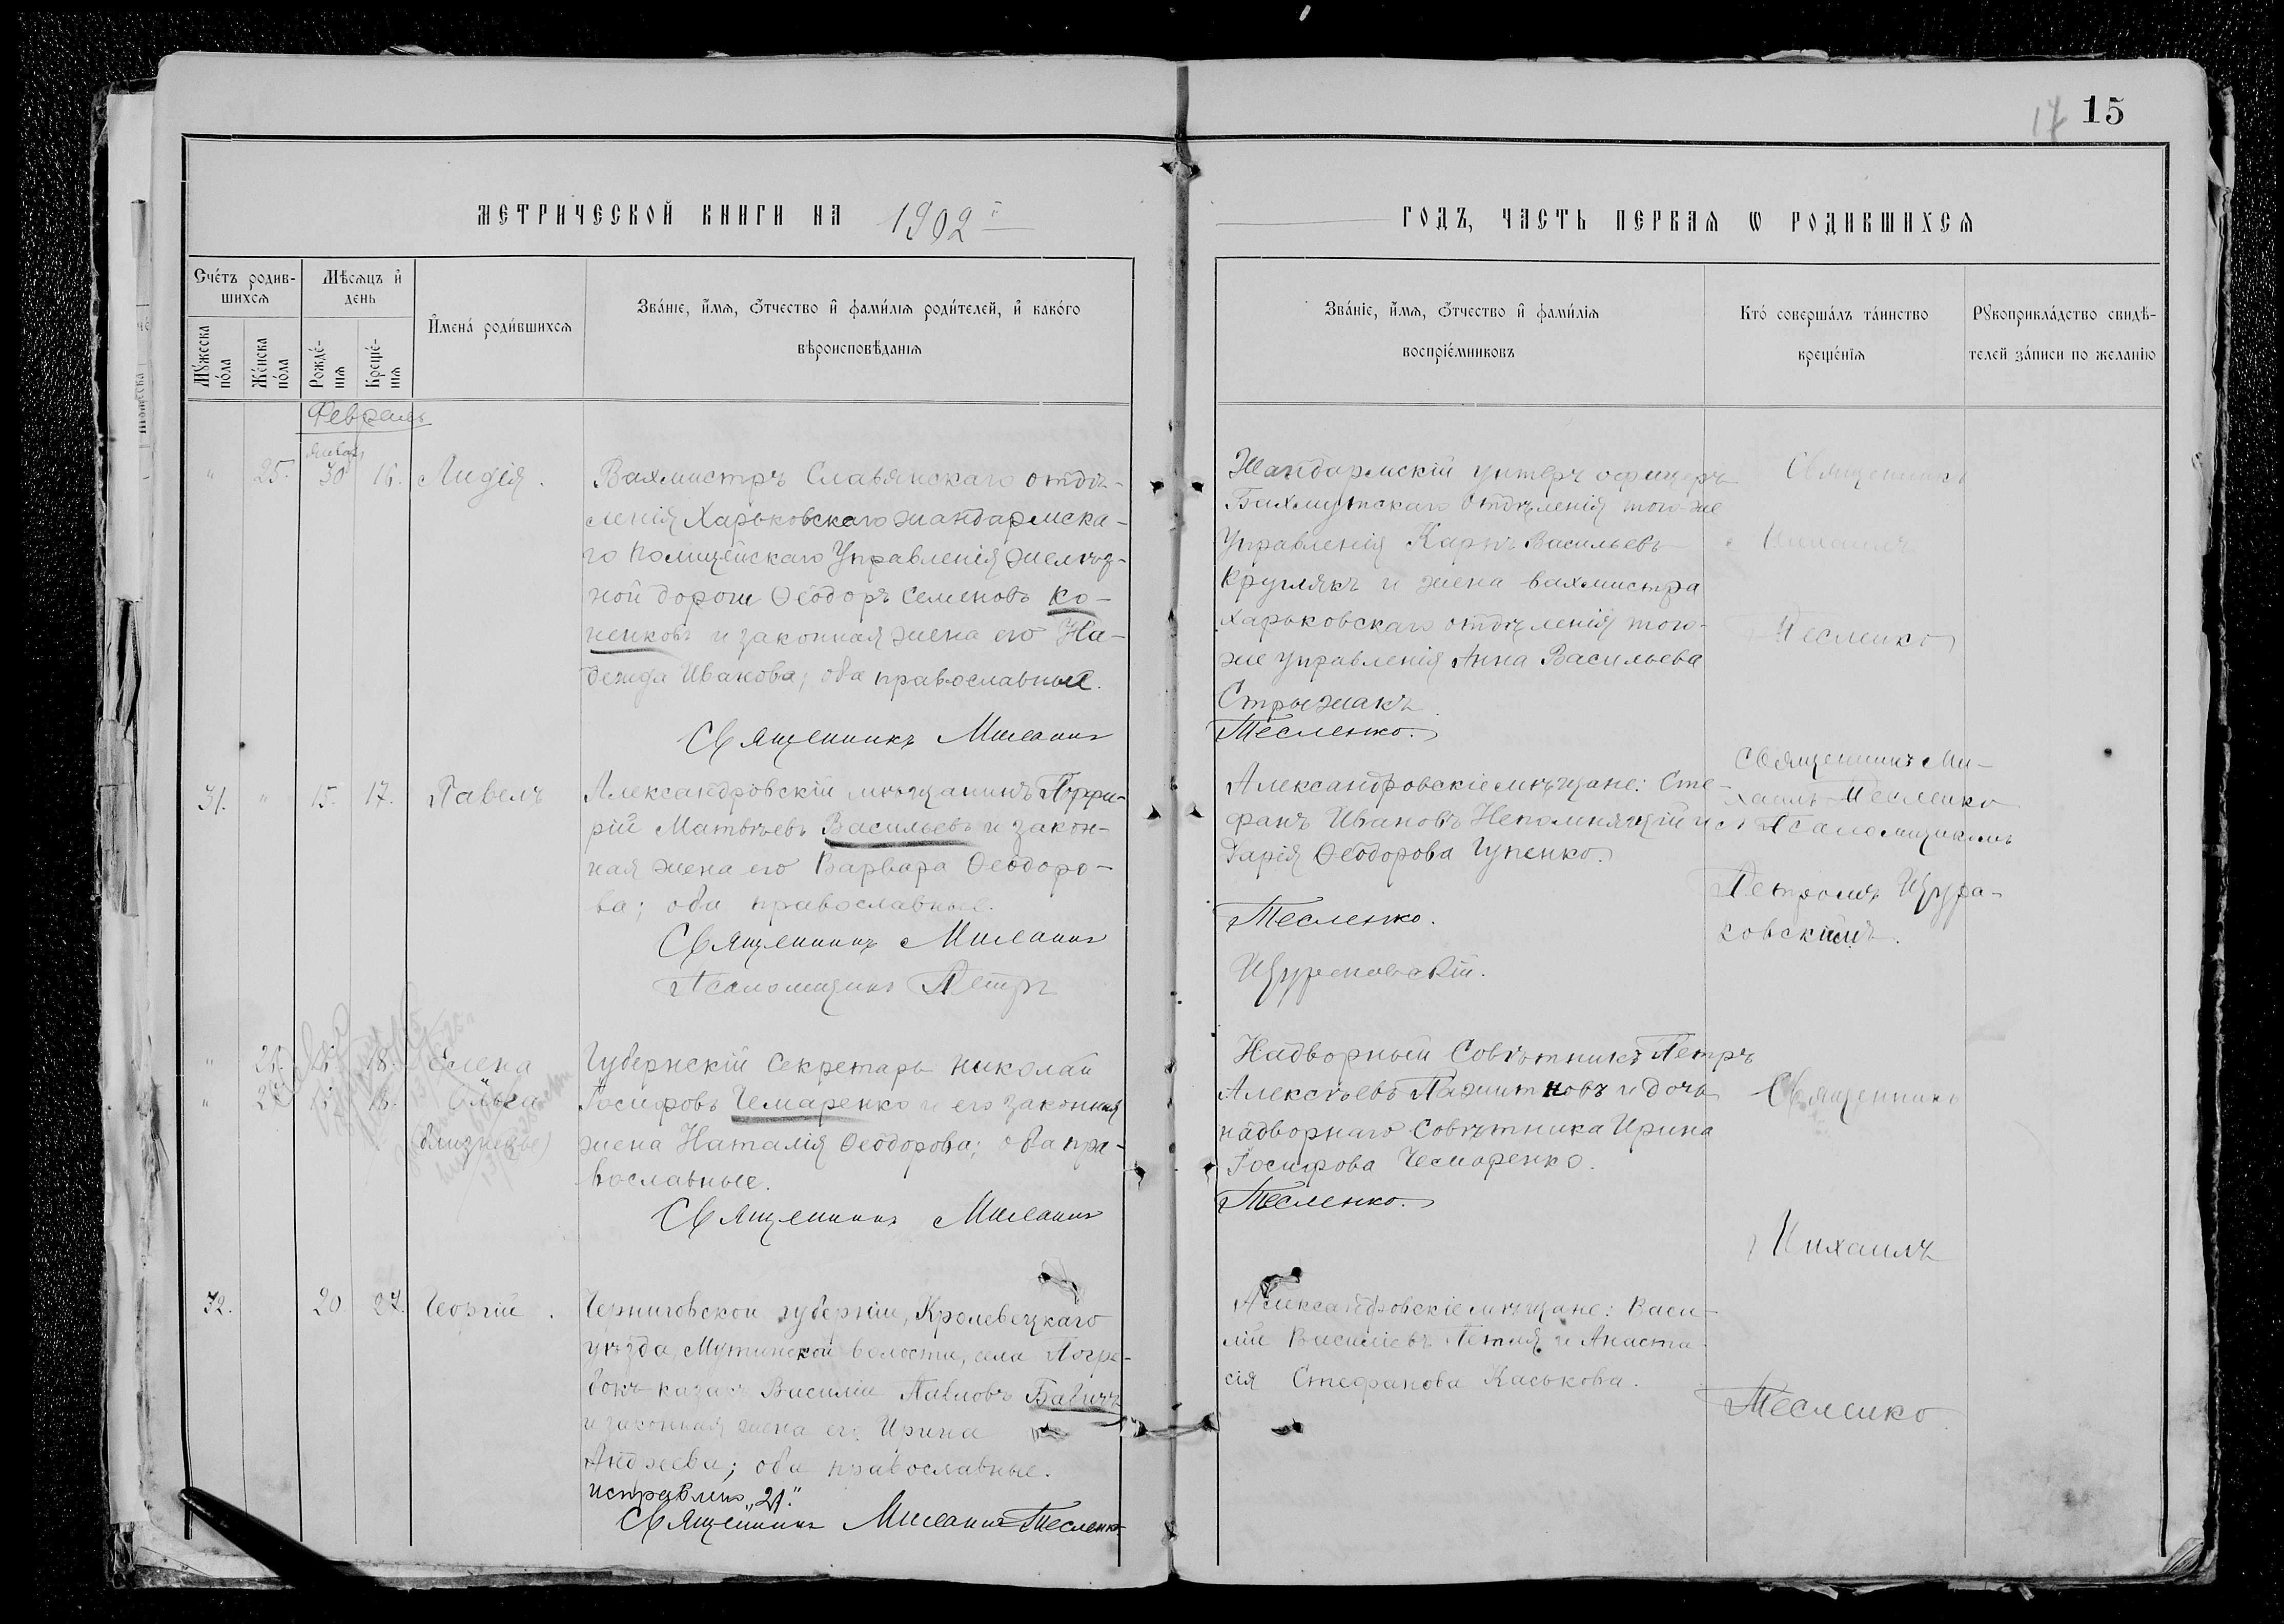 17 15
МЕТРИЧЕСКОЙ КНИГИ НА 1902й
ГОДЪ, ЧАСТЬ ПЕРВАЯ Ѡ РОДИВШИХСЯ
Счетъ родив-
шихся
Мѣсяцъ и
день
Мужеска
пола
Женска
пола
Рожде-
нія
Креще-
нія
Имена родившихся
Званіе, имя, отчество и фамилія родителей, и какого
вѣроисповѣданія
Званіе, имя, отчество и фамилія
воспріемниковъ
Кто совершалъ таинство
крещенія
Рукоприкладство свидѣ-
телей записи по желанію
Февраль
" 25. 30 16. Лидія.
Вахмистръ Славянскаго отдѣ-
ленія Харьковскаго жандармска-
го Полицейскаго Управленія желѣз-
ной дороги Ѳеодоръ Семеновъ Ко-
ненковъ и законная жена его На-
дежда Иванова; оба православные.
Священникъ Михаилъ
Жандармскій унтеръ офицеръ
Бахмутскаго отдѣленія того-же
Управленія Карпъ Васильевъ
Круглякъ и жена вахмистра
Харьковскаго отдѣленія того-
же управленія Анна Васильева
Стрыжакъ
Тесленко.
Священникъ
Михаилъ
Тесленко
31. " 15. 17. Павелъ
Александровскій мѣщанинъ Порфи-
рій Матвѣевъ Васильевъ и закон-
ная жена его Варвара Ѳеодоро-
ва; оба православные.
Священникъ Михаилъ
Псаломщикъ Петръ
Александровскіе мѣщане: Сте-
фанъ Ивановъ Непомнящій и
Дарія Ѳеодорова Гупенко.
Тесленко.
Щурковскій.
Священникъ Ми-
хаилъ Тесленко
съ Псаломщикомъ
Петромъ
" 18. Елена
" 15 18. Ольга
(близнецы)
Губернскій Секретарь Николай
Іосифовъ Чемаренко и его законная
жена Наталія Ѳеодорова; оба пра-
вославные.
Священникъ Михаилъ
Надворный Совѣтникъ Петръ
Алексѣевъ Пажитновъ и дочь
надворнаго Совѣтника Ирина
Іосифова Чемаренко.
Тесленко.
Священникъ
Михаилъ
Тесленко
32. 20 27. Георгій.
Черниговской губерніи, Кролевецкаго
уѣзда, Мутинской волости, села Погре-
бокъ казакъ Василій Павловъ Бабичъ
и законная жена его Ирина
Андреева; оба православные.
исправлено „21."
Священникъ Михаилъ Тесленко
Александровскіе мѣщане: Васи-
лій Василіевъ Петля и Анаста-
сія Стефанова Каськова.